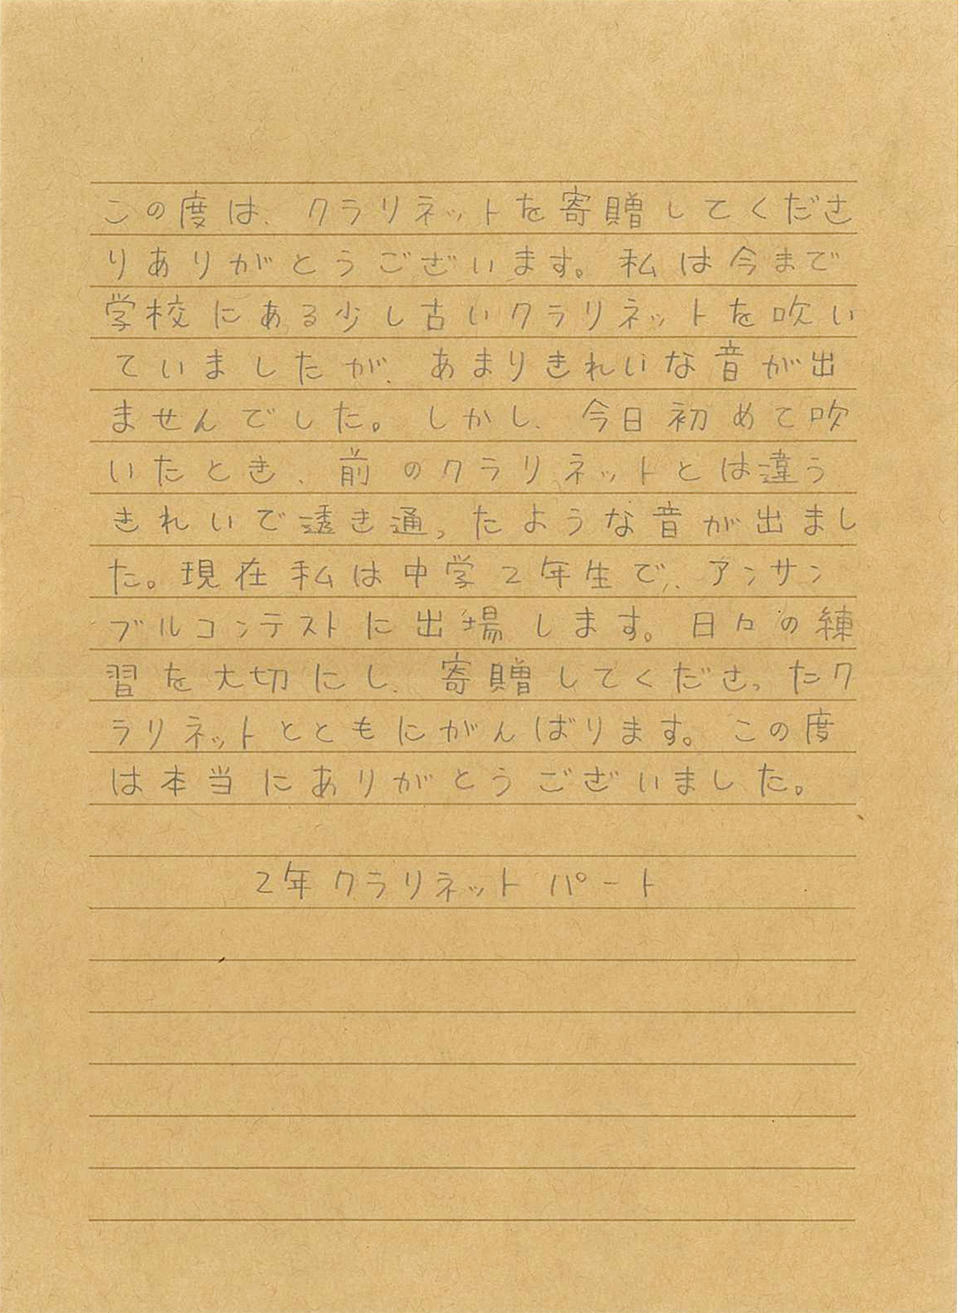 この度は、クラリネットを寄贈してくださ
りありがとうございます。私は今まで
学校にある少し古いクラリネットを吹い
ていましたが、あまりきれいな音が出
ませんでした。しかし、今日初めて吹
いたとき、前のクラリネットとは違う
きれいで透き通ったような音が出まし
た。現在私は中学2年生で、アンサン
ブルコンテストに出場します。日々の練
習を大切にし、寄贈してくださったク
ラリネットとともにがんばります。この度
は本当にありがとうございました。
2年クラリネットパート